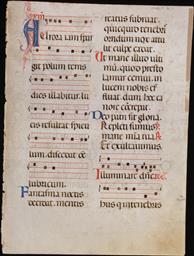 Aurora iam spar
git polum terris
dies illabitur. lu
cis resultat spicu
lum. discedat oe
lubricum.
Fantasma noctis
decidat. mentis
reatus subruat.
quicquid tenebris
orridum nox attu
lit culpe cadat.
Ut mane illud ulti
mum. quod presto
lamur cernui. in
lucem nobis ef
fluat. dum hec ca
nore concrepat.
Deo patri sit gloria.
Repleti sumus
mane mia tua.
Et exultauimus.
Illuminare dne
his qui in tenebris